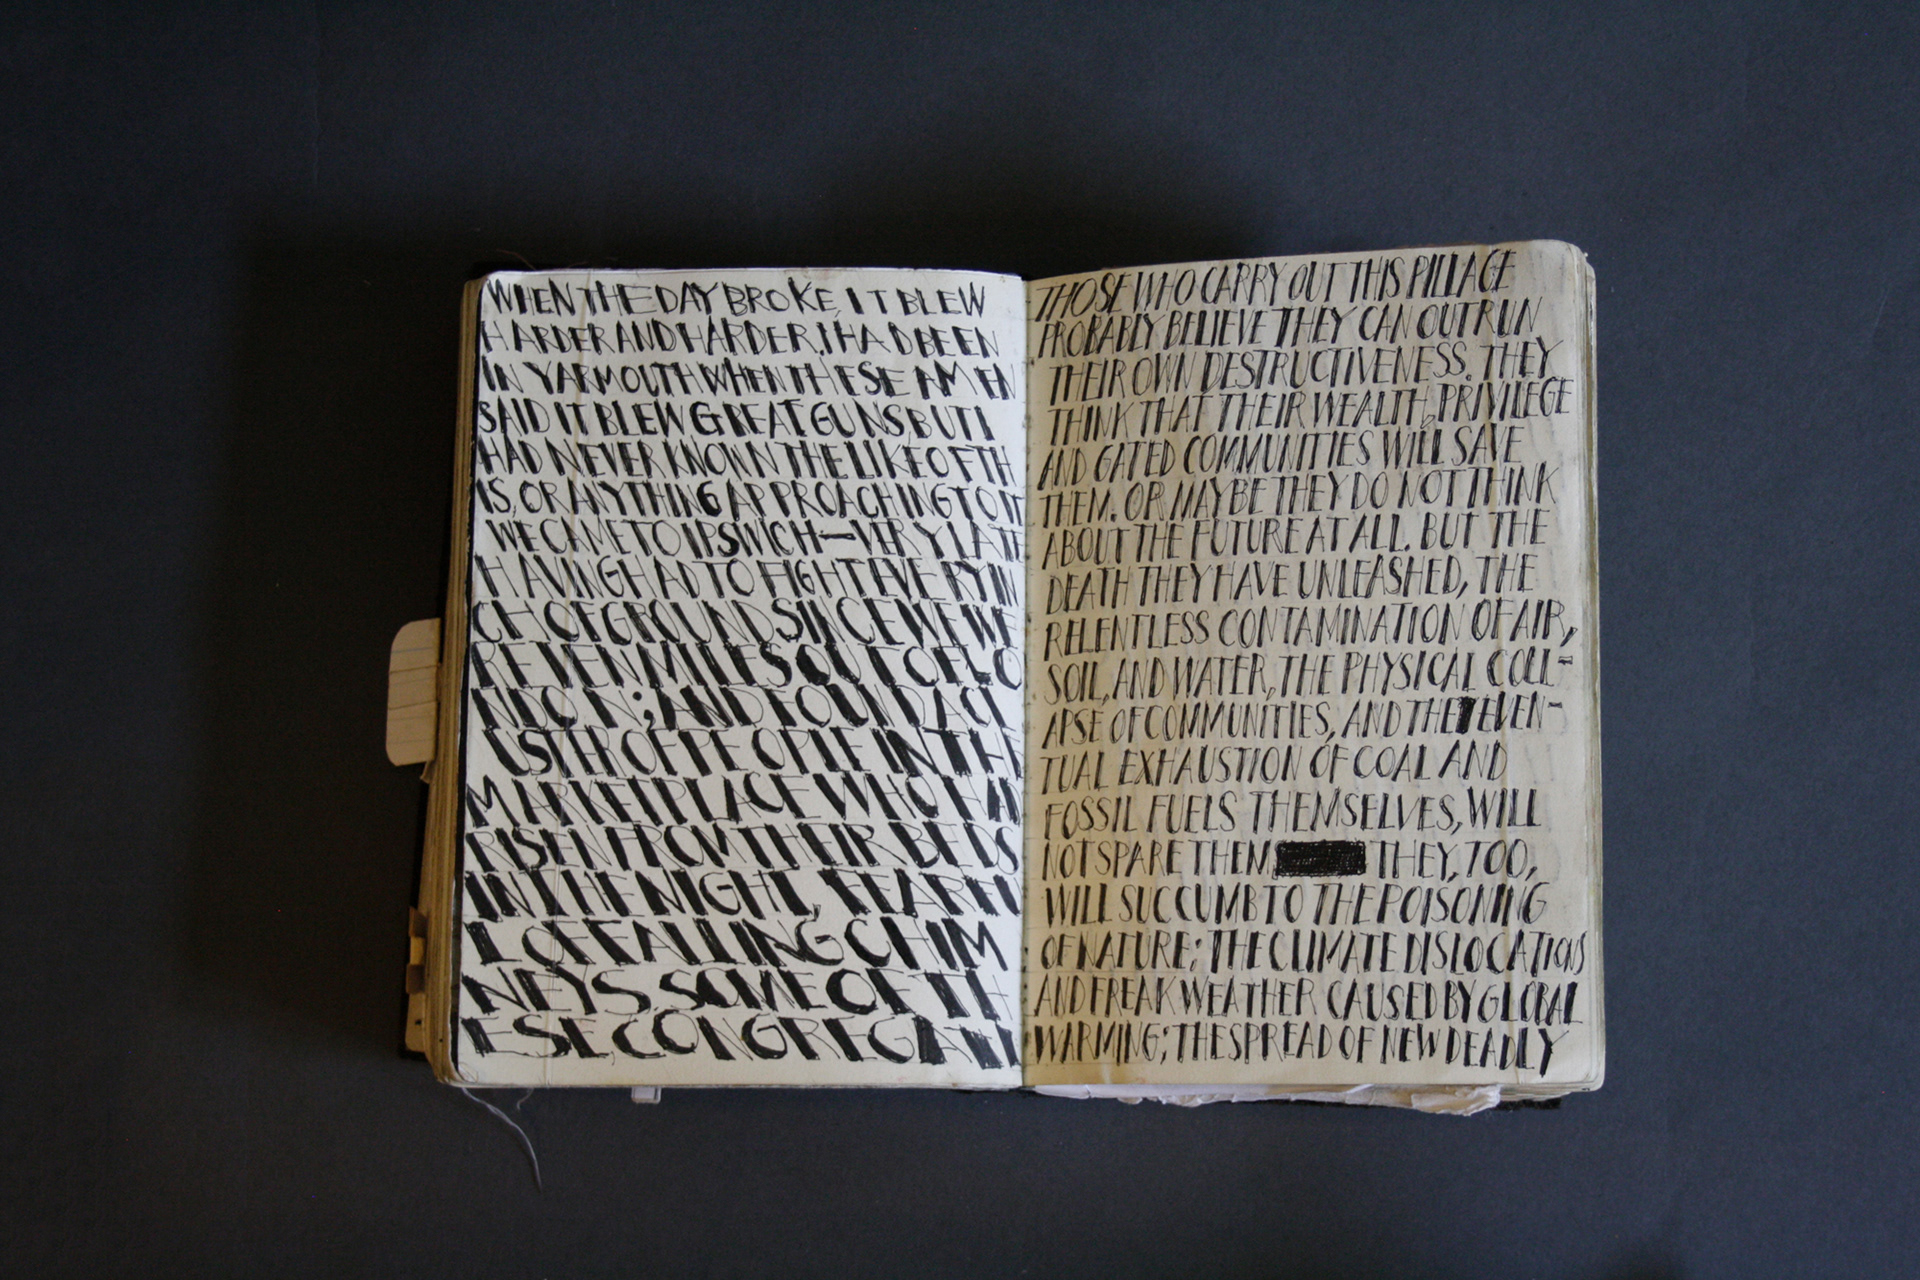 WHEN THE DAY BROKE, IT BLEW
HARDER AND HARDER. I HAD BEEN
IN YARMOUTH WHEN THE SEAMEN
SAID IT BLEW GREAT GUNS BUT I
HAD NEVER KNOWN THE LIKE OF TH
IS, OR ANYTHING APPROACHING TO IT
WE CAME TO IPSWICH—VERY LATE
HAVING HAD TO FIGHT EVERY IN
CH OF GROUND SINCE WE WE
RE TEN MILES OUT OF LO
NDON; AND FOUND A CL
USTER OF PEOPLE IN THE
MARKETPLACE WHO HAD
RISEN FROM THEIR BEDS
IN THE NIGHT, FEARFU
L OF FALLING CHIM
NEYS. SOME OF TH
ESE, CONGREGATI
THOSE WHO CARRY OUT THIS PILLAGE
PROBABLY BELIEVE THEY CAN OUTRUN
THEIR OWN DESTRUCTIVENESS. THEY
THINK THAT THEIR WEALTH, PRIVILEGE
AND GATED COMMUNITIES WILL SAVE
THEM. OR MAYBE THEY DO NOT THINK
ABOUT THE FUTURE AT ALL. BUT THE
DEATH THEY HAVE UNLEASHED, THE
RELENTLESS CONTAMINATION OF AIR,
SOIL, AND WATER, THE PHYSICAL COLL-
APSE OF COMMUNITIES, AND THE EVEN-
TUAL EXHAUSTION OF COAL AND
FOSSIL FUELS THEMSELVES, WILL
NOT SPARE THEM THEY, TOO,
WILL SUCCUMB TO THE POISONING
OF NATURE; THE CLIMATE DISLOCATIONS
AND FREAK WEATHER CAUSED BY GLOBAL
WARMING; THE SPREAD OF NEW DEADLY